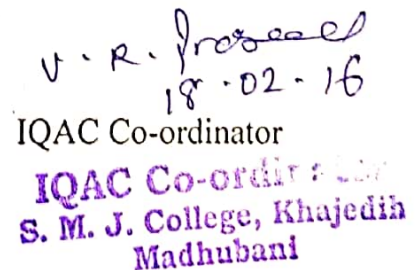 V. R. Prasad
18.02.16
IQAC Co-ordinator
IQAC Co-ordinator
S. M. J. College, Khajedih
Madhubani